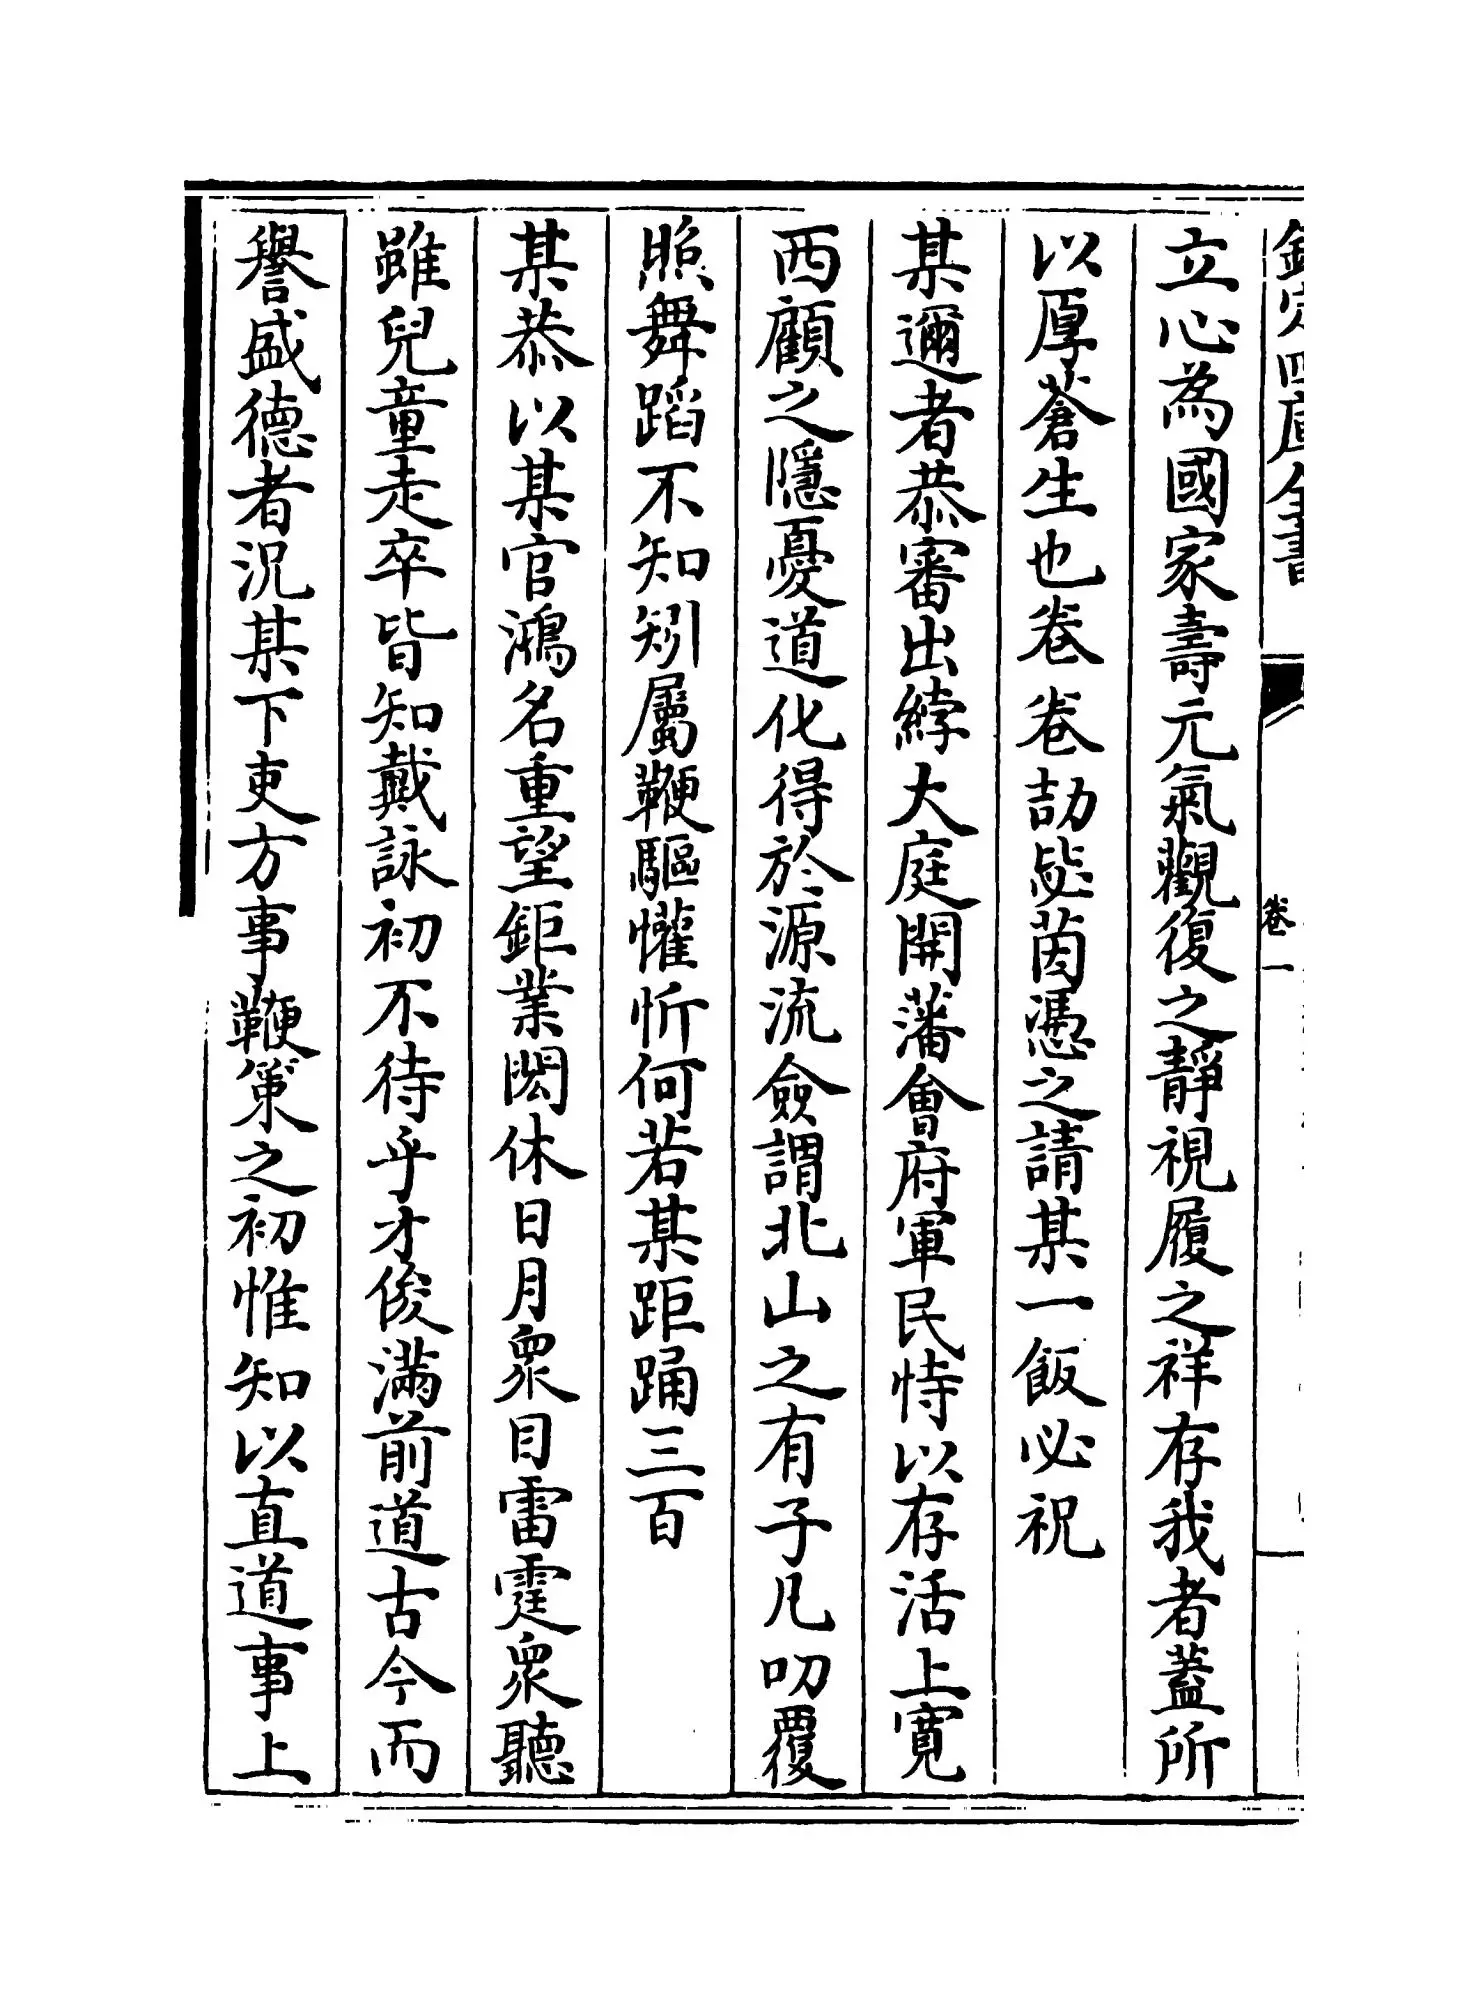 欽定四庫全書
卷一
立心為國家壽元氣觀復之靜視履之祥存我者蓋所
以厚蒼生也卷卷劼毖茵憑之請某一飯必祝
某邇者恭審出綍大庭開藩會府軍民恃以存活上寛
西顧之隱憂道化得於源流僉謂北山之有子凡叨覆
照舞蹈不知矧屬鞭驅懽忻何若某距踊三百
某恭以某官鴻名重望鉅業閎休日月衆目雷霆衆聽
雖兒童走卒皆知戴詠初不待乎才俊滿前道古今而
譽盛德者況某下吏方事鞭䇿之初惟知以直道事上